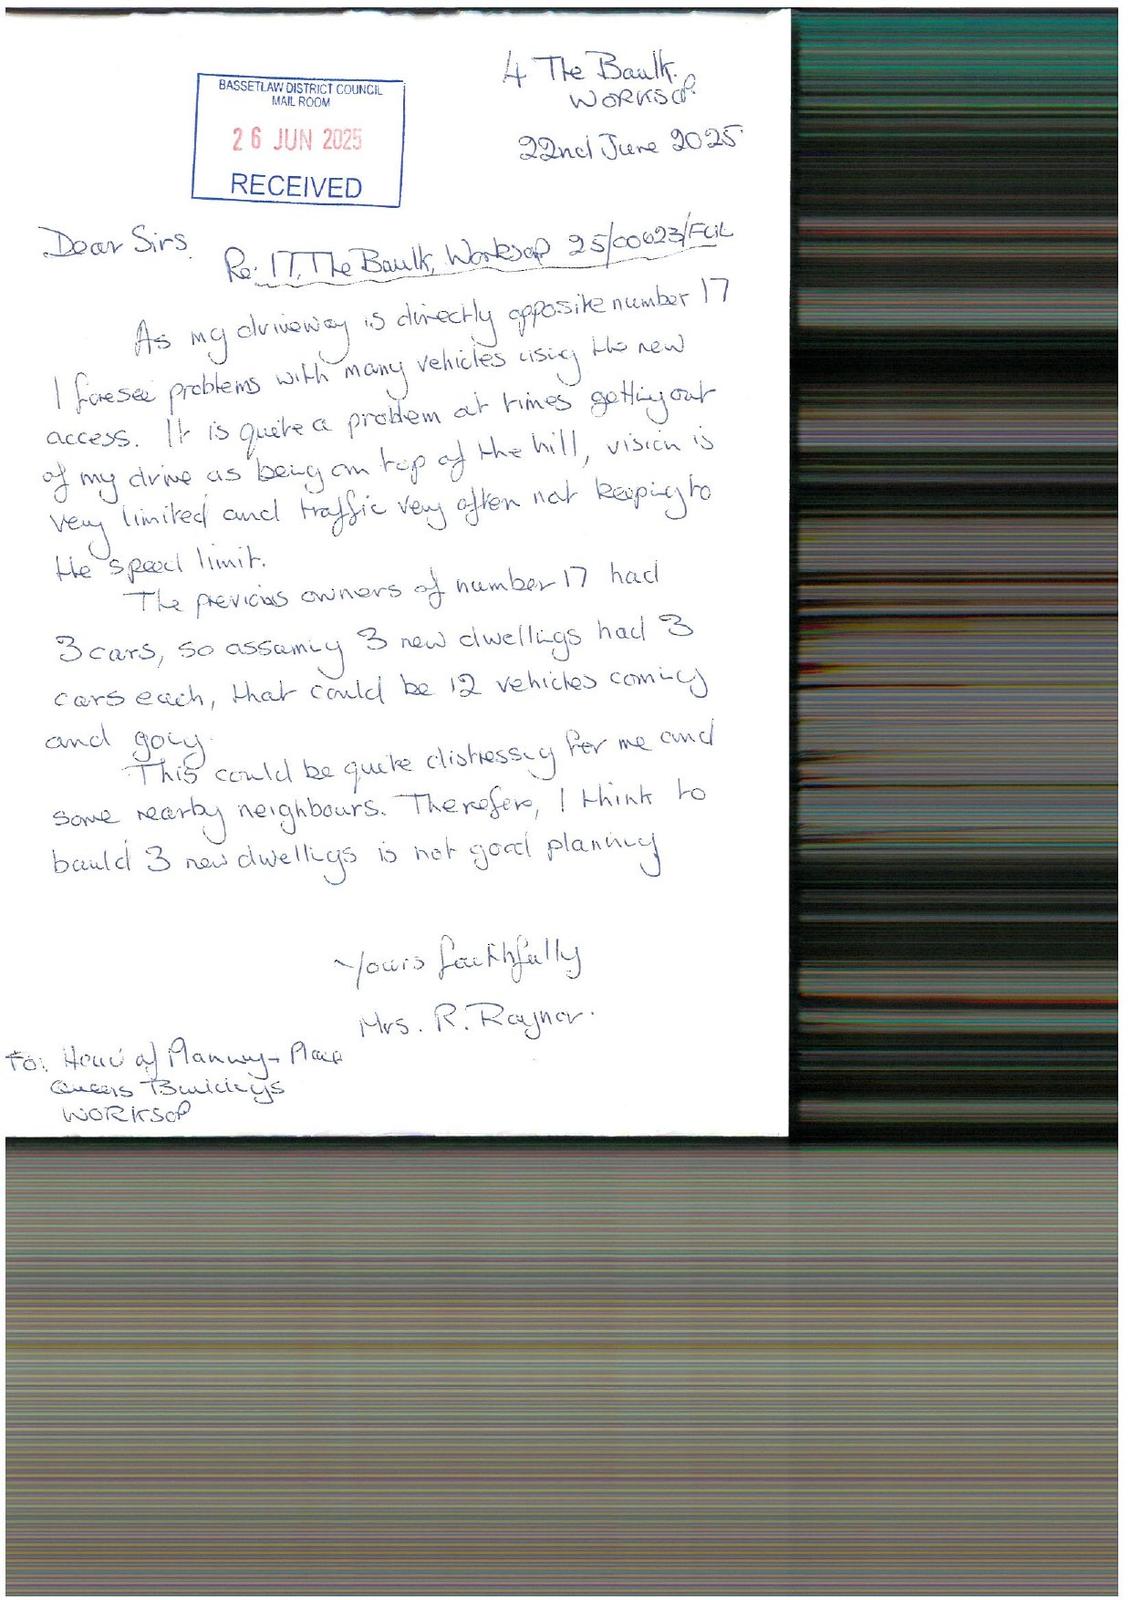 4 The Baulk.
WORKSOP.
BASSETLAW DISTRICT COUNCIL
MAIL ROOM
26 JUN 2025
RECEIVED
22nd June 2025
Dear Sirs.
Re: 17, The Baulk, Worksop 25/00623/FUL
As my driveway is directly opposite number 17
I foresee problems with many vehicles using the new
access. It is quite a problem at times getting out
of my drive as being on top of the hill, vision is
very limited and traffic very often not keeping to
the speed limit.
The previous owners of number 17 had
3 cars, so assuming 3 new dwellings had 3
cars each, that could be 12 vehicles coming
and going.
This could be quite distressing for me and
some nearby neighbours. Therefore, I think to
build 3 new dwellings is not good planning
Yours faithfully
Mrs. R. Raynor.
To: Head of Planning - Place
Queens Buildings
WORKSOP